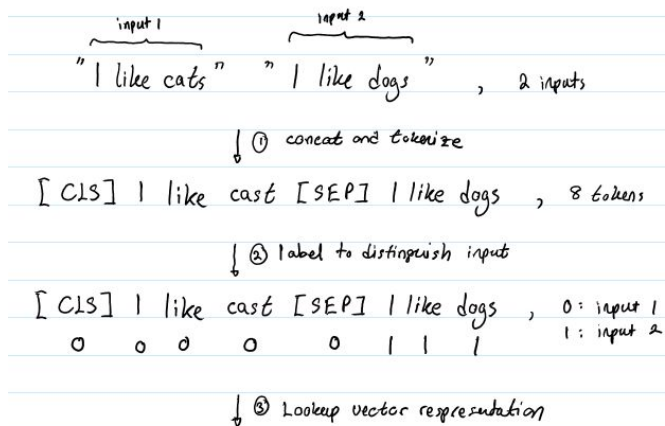 input 1 input 2
"I like cats" "I like dogs", 2 inputs
① concat and tokenize
[CLS] I like cast [SEP] I like dogs, 8 tokens
② label to distinguish input
[CLS] I like cast [SEP] I like dogs, 0: input 1
0 0 0 0 0 1 1 1 1: input 2
③ Lookup vector respresentation